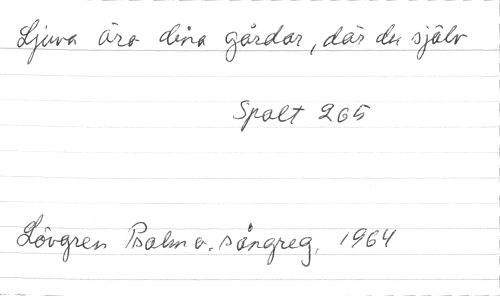 Ljuva äro dina gårdar, där du själv
Spalt 265
Lövgren Psalm o. sångreg. 1964